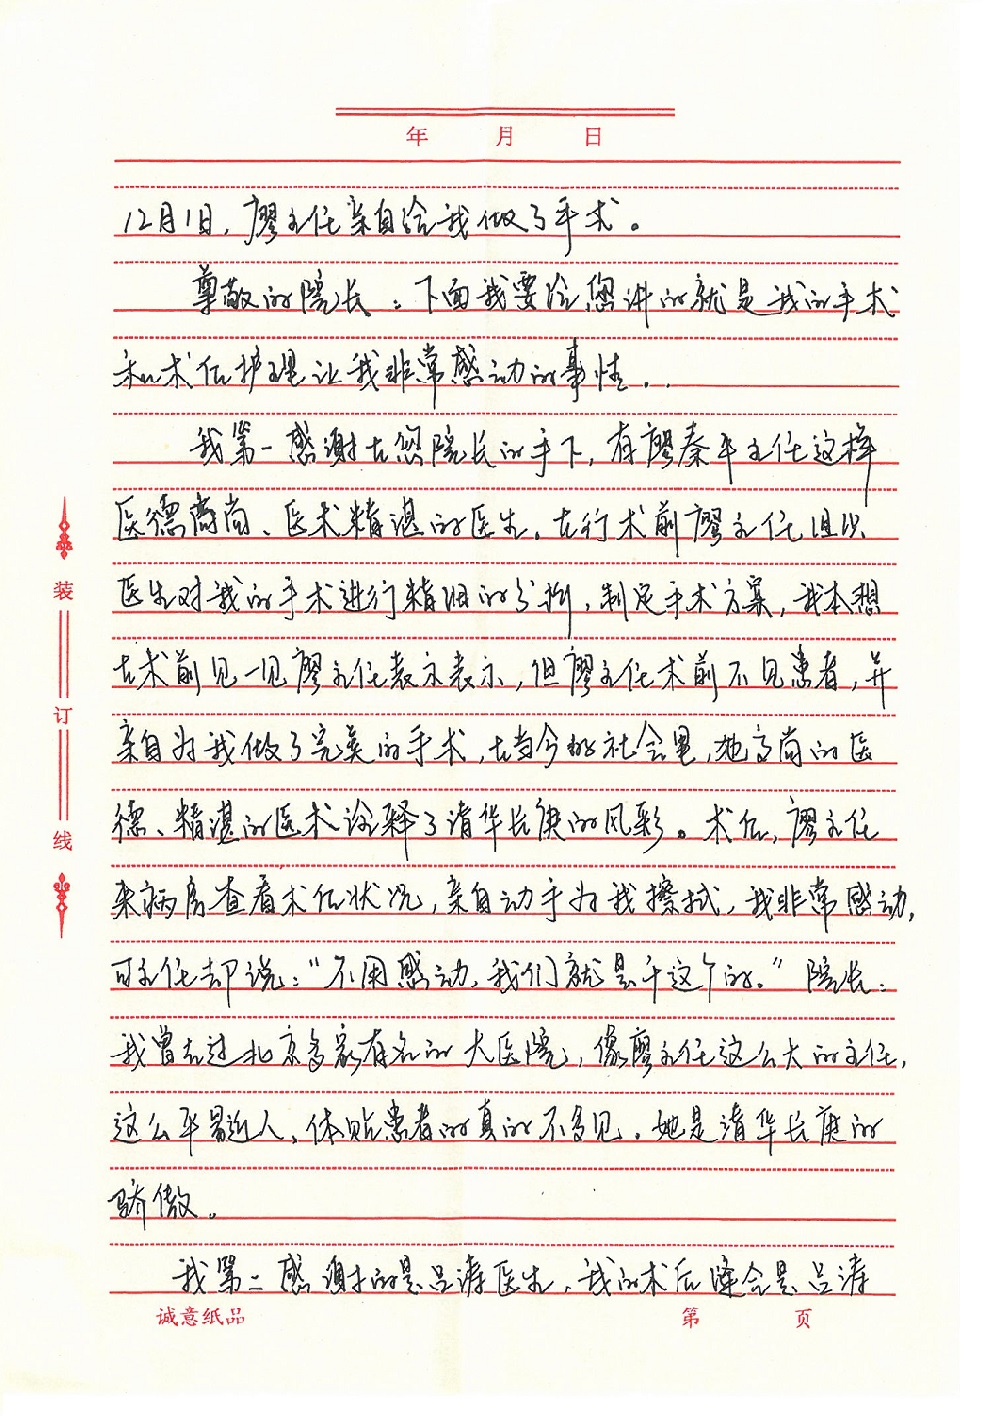 年 月 日
12月1日，廖主任亲自给我做了手术。
尊敬的院长：下面我要给您讲的就是我的手术
和术后护理让我非常感动的事情．．
我第一感谢在您院长的手下，有廖秦平主任这样
医德高尚、医术精湛的医生。在行术前廖主任组织
医生对我的手术进行精细的分析，制定手术方案，我本想
在术前见一见廖主任表示表示，但廖主任术前不见患者，并
亲自为我做了完美的手术，在当今的社会里，她高尚的医
德、精湛的医术诠释了清华长庚的风彩。术后，廖主任
来病房查看术后状况，亲自动手为我擦拭，我非常感动，
可主任却说：“不用感动，我们就是干这个的。”院长：
我曾去过北京多家有名的大医院，像廖主任这么大的主任，
这么平易近人、体贴患者的真的不多见。她是清华长庚的
骄傲。
我第二感谢的是吕涛医生，我的术后缝合是吕涛
装
订
线
诚意纸品 第 页